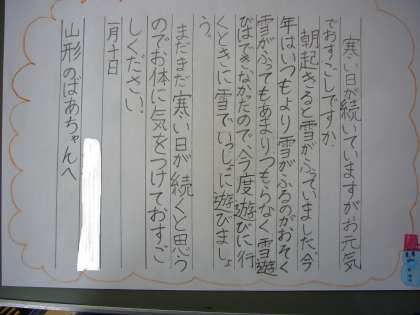 寒い日が続いていますがお元気
でおすごしですか。
朝起きると雪がふっていました。今
年はいつもより雪がふるのがおそく
雪がふってもあまりつもらなく雪遊
びはできなかたので、今度遊びに行
くときに雪でいっしょに遊びましょ
う。
まだまだ寒い日が続くと思う
のでお体に気をつけておすご
しください。
一月十日
山形のばあちゃんへ